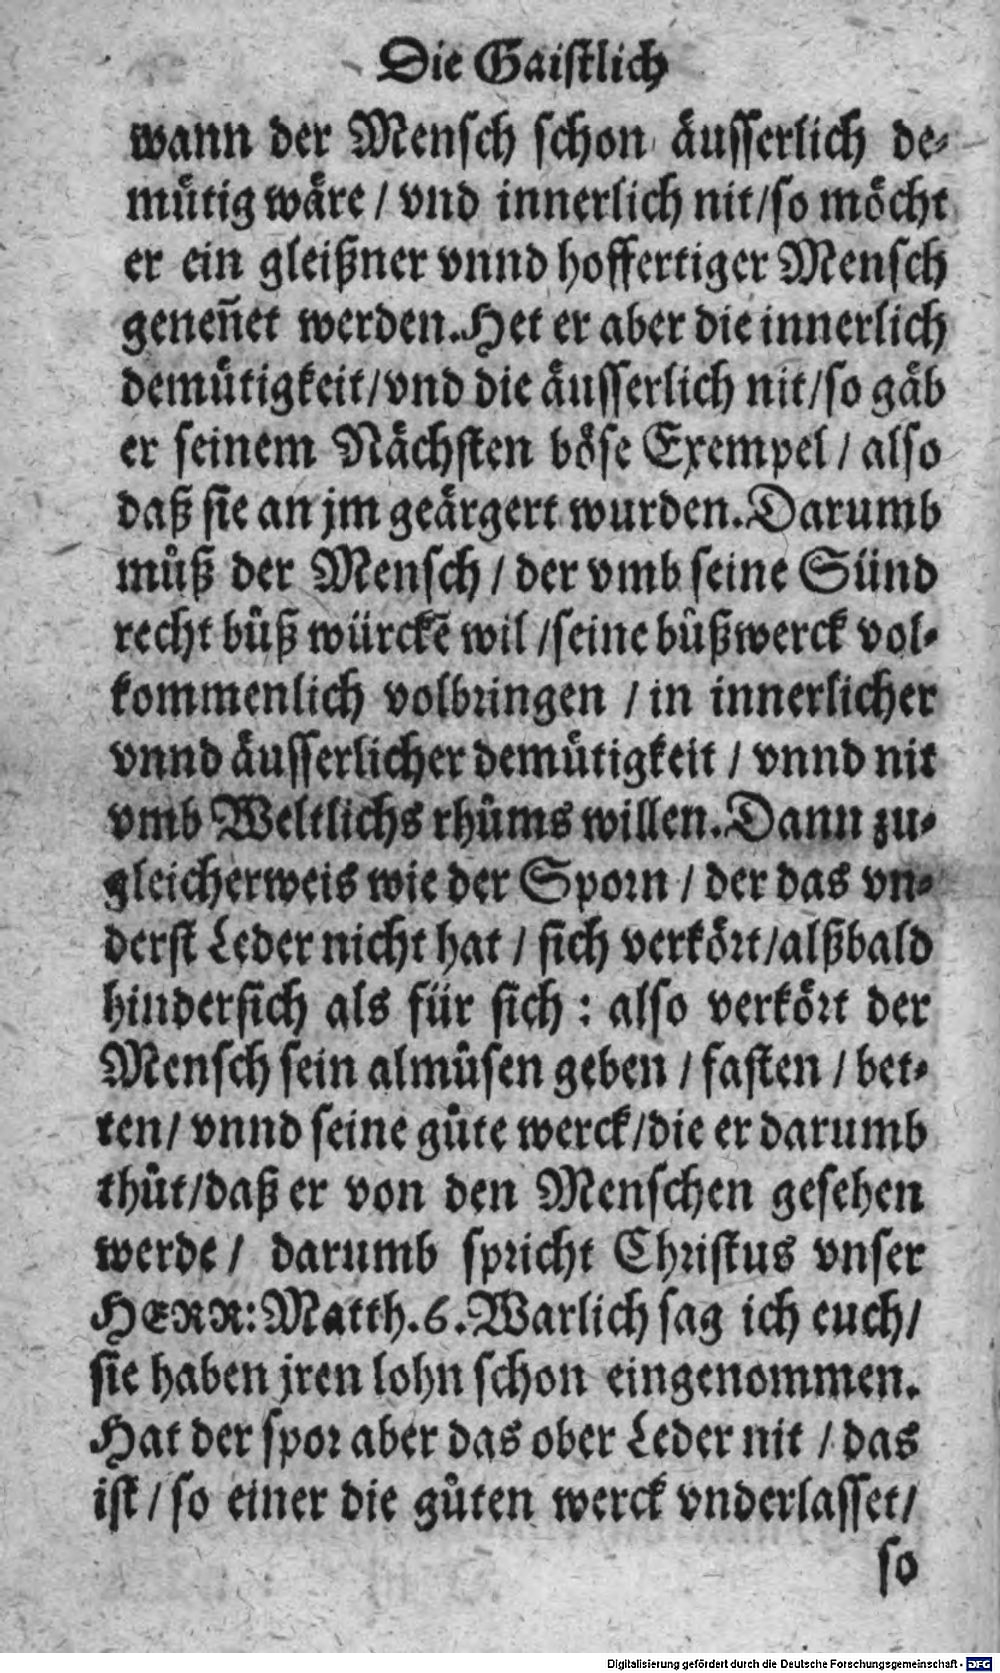 Die Gaistlich
wann der Mensch schon äusserlich de-
mütig wäre / vnd innerlich nit/so möcht
er ein gleißner vnnd hoffertiger Mensch
geneñet werden. Het er aber die innerlich
demütigkeit/vnd die äusserlich nit/so gäb
er seinem Nächsten böse Exempel / also
daß sie an jm geärgert wurden. Darumb
můß der Mensch / der vmb seine Sünd
recht bůß würckẽ wil /seine bůßwerck vol-
kommenlich volbringen / in innerlicher
vnnd äusserlicher demütigkeit / vnnd nit
vmb Weltlichs rhůms willen. Dann zu-
gleicherweis wie der Sporn / der das vn-
derst Leder nicht hat / sich verkört/alßbald
hindersich als für sich : also verkört der
Mensch sein almůsen geben / fasten / bet-
ten/ vnnd seine gůte werck/die er darumb
thůt/daß er von den Menschen gesehen
werde / darumb spricht Christus vnser
HERR: Matth. 6. Warlich sag ich euch/
sie haben jren lohn schon eingenommen.
Hat der spor aber das ober Leder nit / das
ist / so einer die gůten werck vnderlasset/
so
Digitalisierung gefördert durch die Deutsche Forschungsgemeinschaft - DFG